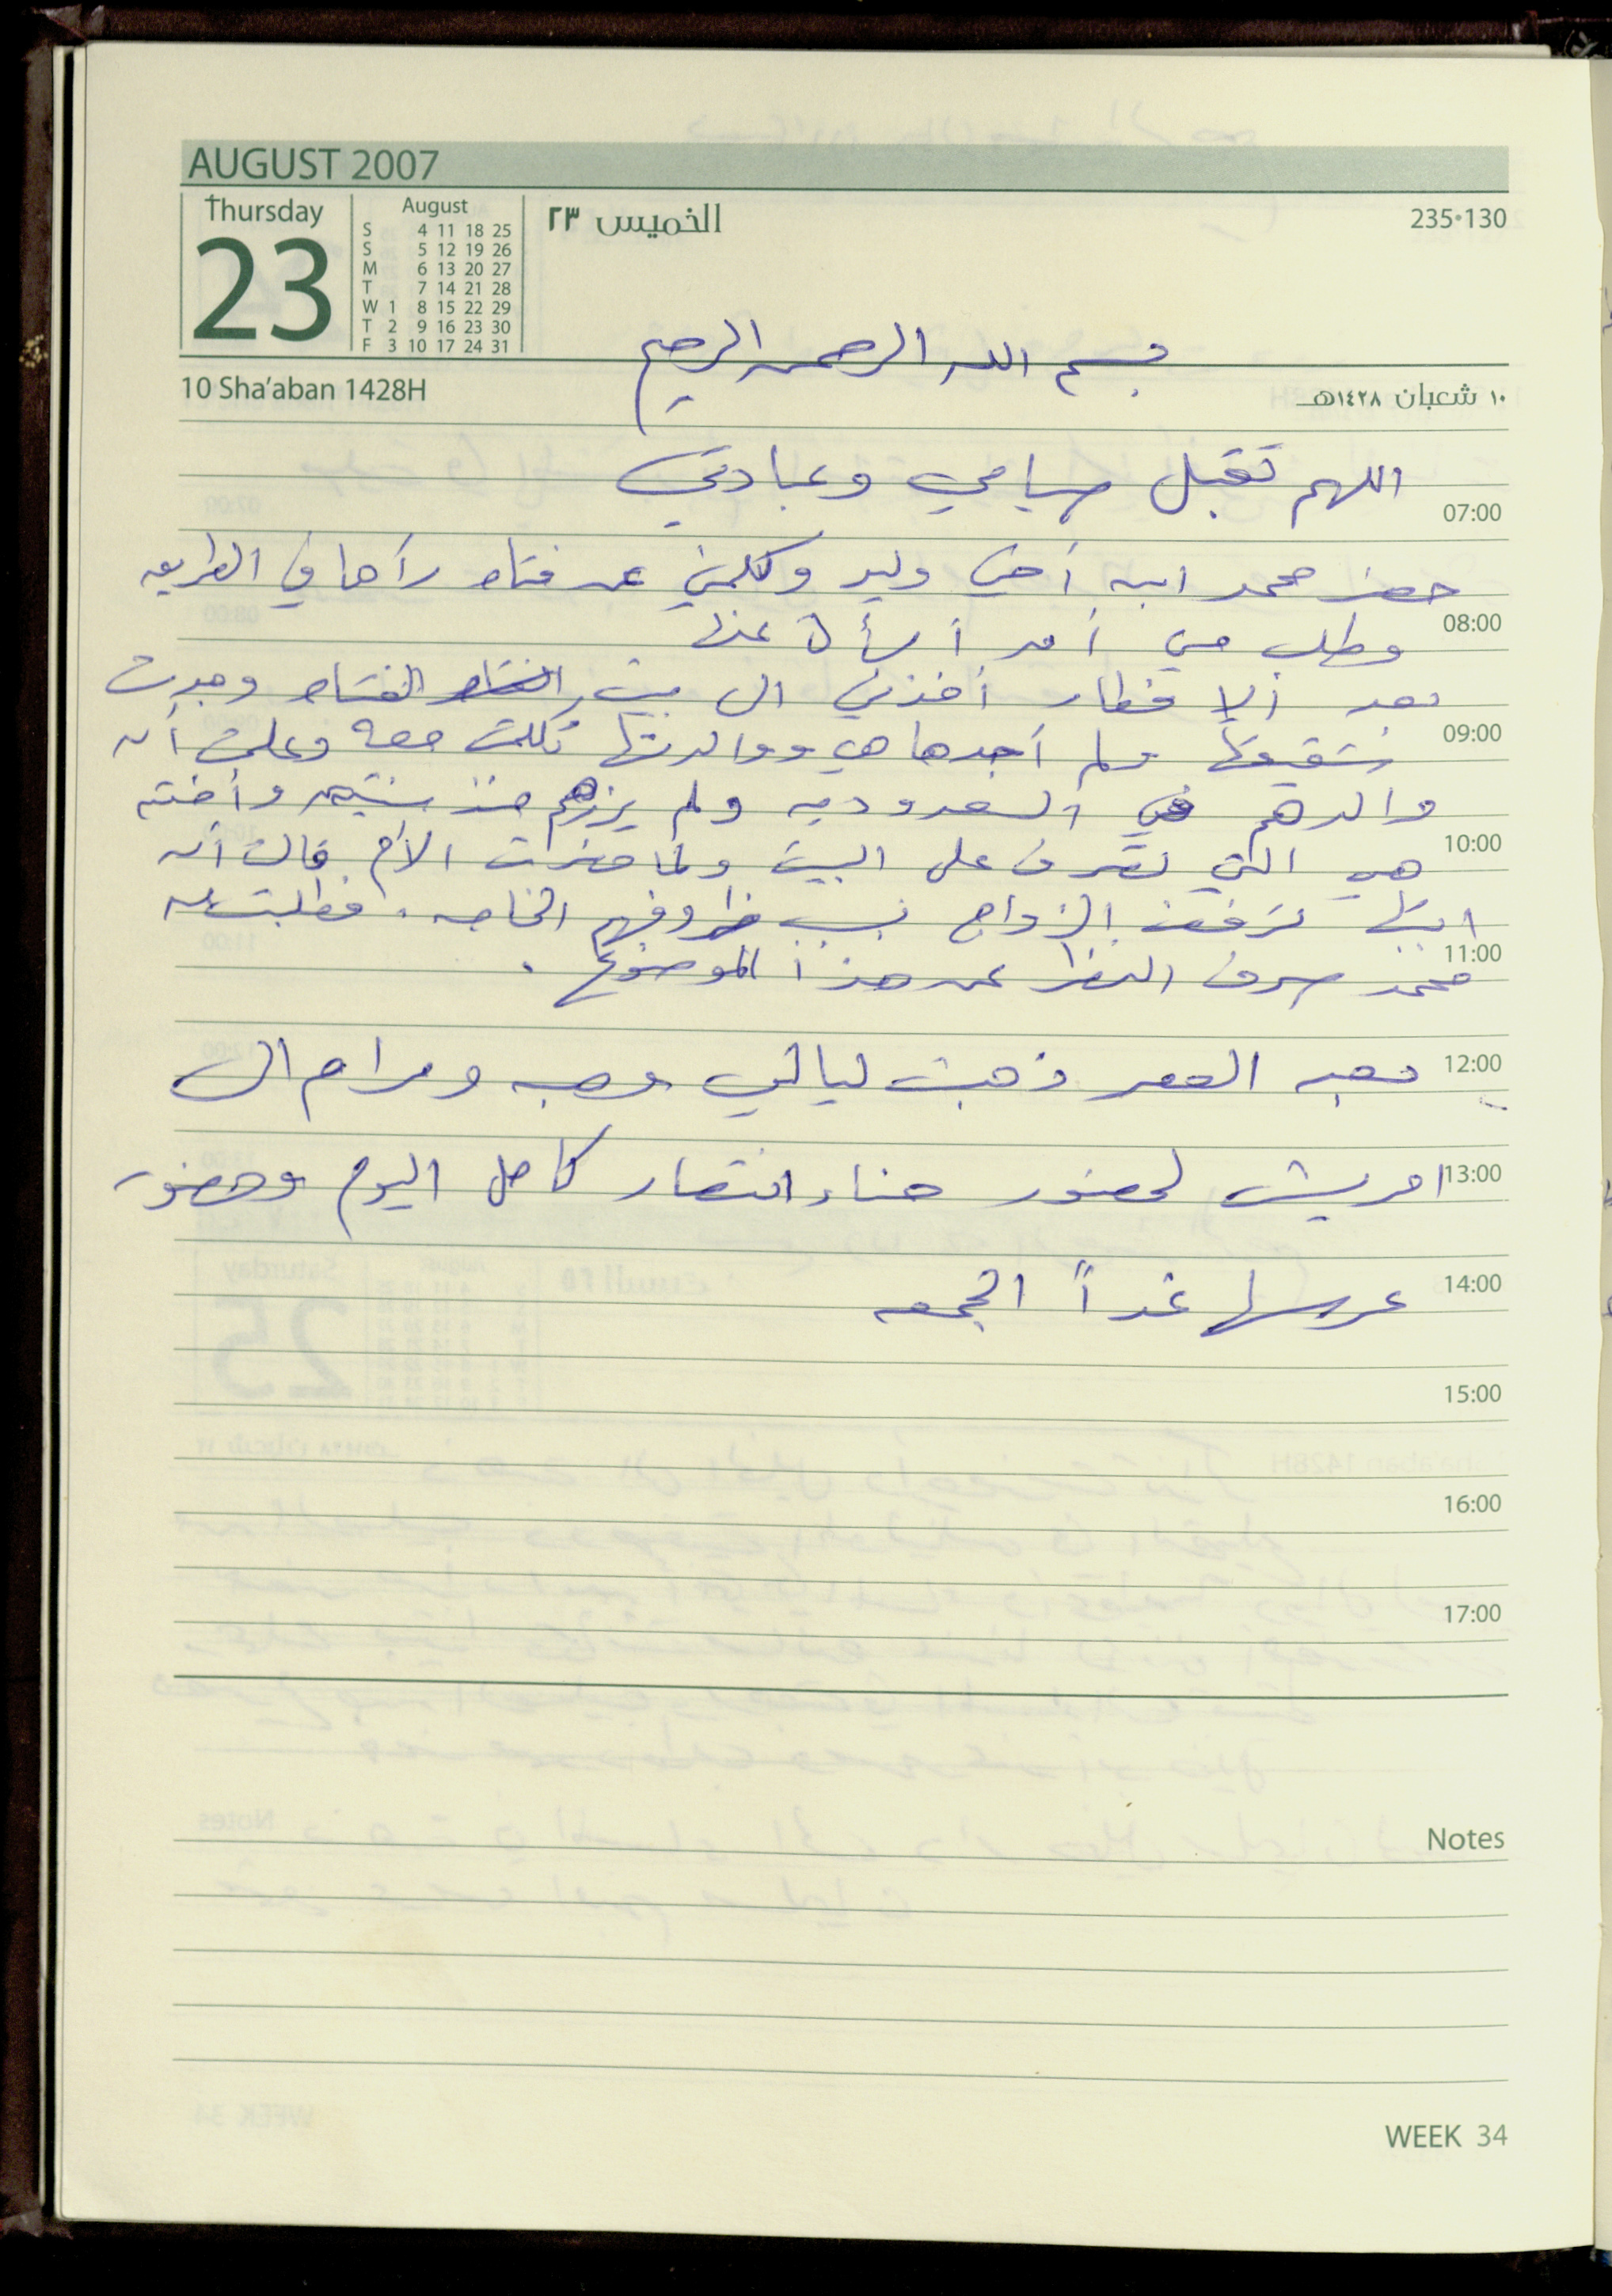 AUGUST 2007
Thursday
23
August
S 4 11 18 25
S 5 12 19 26
M 6 13 20 27
T 7 14 21 28
W 1 8 15 22 29
T 2 9 16 23 30
F 3 10 17 24 31
الخميس ٢٣
235•130
بسم الله الرحمن الرحيم
10 Sha'aban 1428H
١٠ شعبان ١٤٢٨هـ
اللهم تقبل صيامي وعبادتي
07:00
حضر محمد ابن أختي وليد وكلمني عن فتاه رآها في الطريق
08:00
وطلب مني أن أسأل عنها
بعد الافطار أخذني الى بيت الفتاه وجدت
09:00
شقيقها ولم أجدها هي ووالدتها تكلمت معه وعلمت أن
والدهم في السعوديه ولم يزرهم منذ سنتين وأخته
10:00
هي التي تصرف على البيت ولما حضرت الأم قالت أن
ابنتها ترفض الزواج بسبب ظروفهم الخاصه . فطلبت من
11:00
محمد صرف النظر عن هذا الموضوع .
12:00
بعد العصر ذهبت ليالي وهبه ومرام الى
13:00
امريش لحضور حناء انتصار كامل اليوم وحضور
14:00
عرسها غداً الجمعه
15:00
16:00
17:00
Notes
WEEK 34